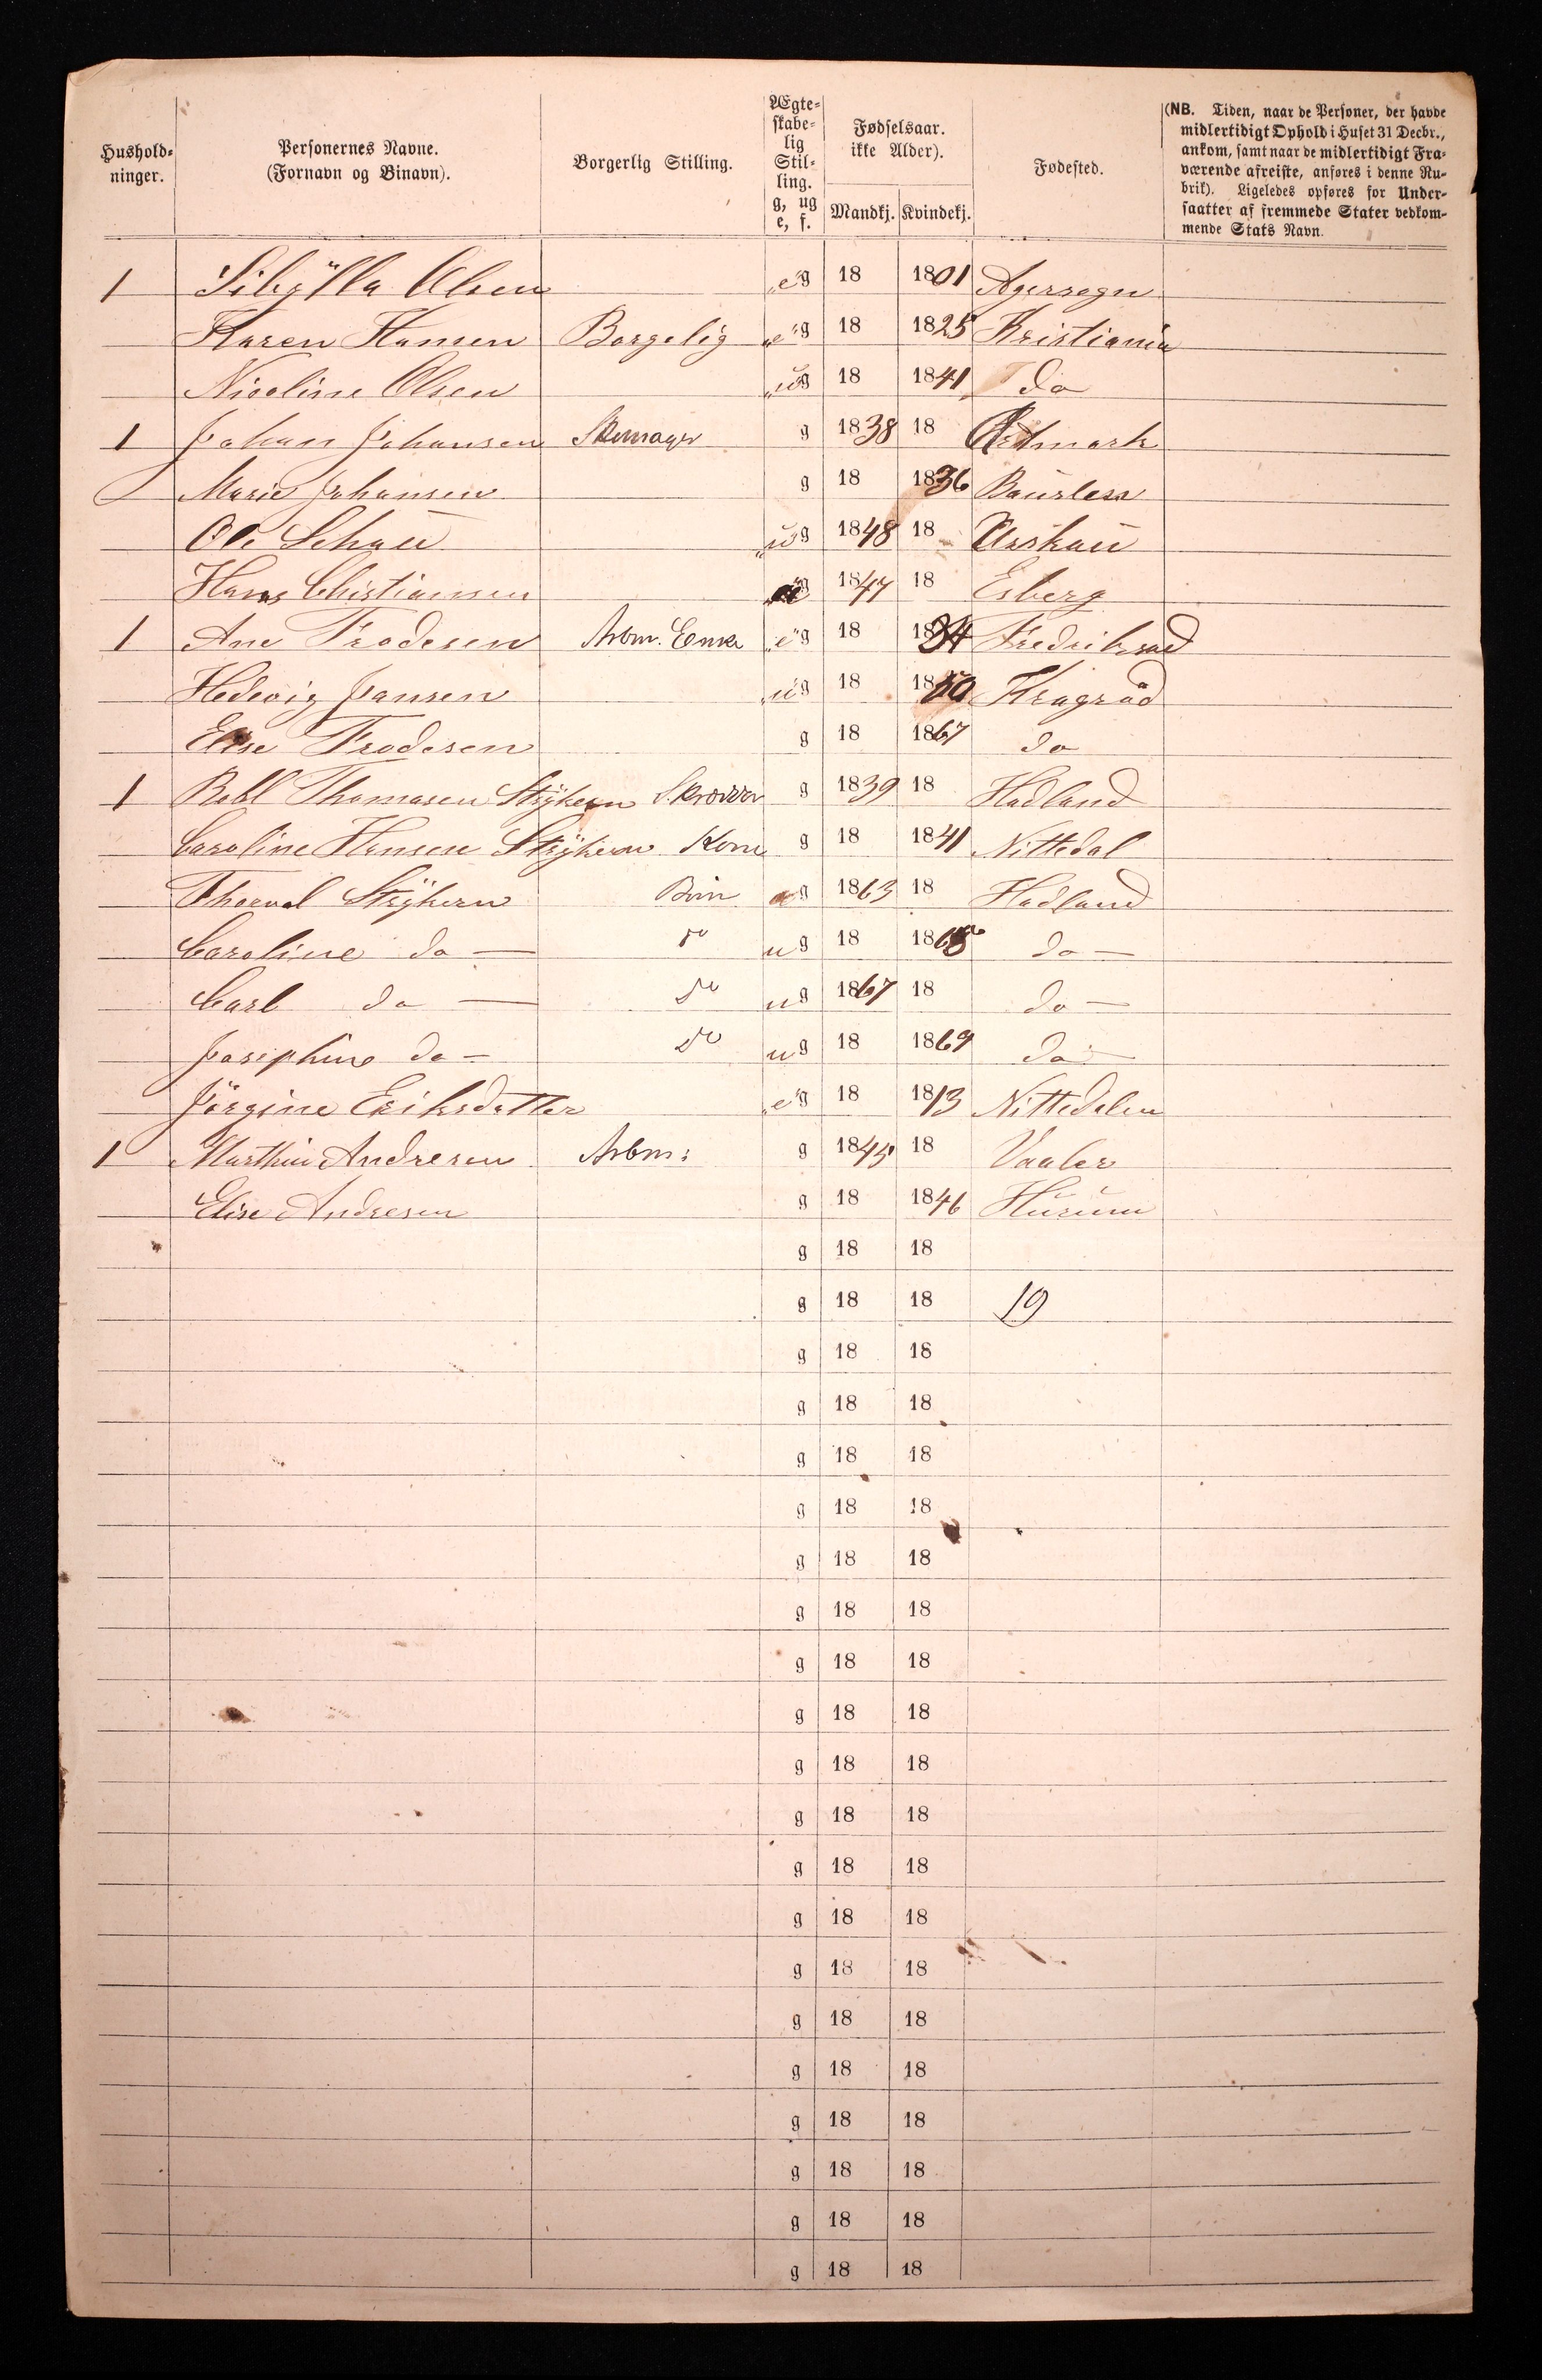 Hushold-
ninger.
Personernes Navne.
(Fornavn og Binavn).
Borgerlig Stilling.
Ægte-
skabe-
lig
Stil-
ling.
g, ug
e, f.
Fødselsaar.
ikke Alder).
Mandkj. Kvindekj.
Fødested.
(NB. Tiden, naar de Personer, der havde
midlertidigt Ophold i Huset 31 Decbr.,
ankom, samt naar de midlertidigt Fra-
værende afreiste, anføres i denne Ru-
brik). Ligeledes opføres for Under-
saatter af fremmede Stater vedkom-
mende Stats Navn.
1 Sibÿlla Olsen "e" g 18 1801 Agersogn
Karen Hansen Borgelig "e" g 18 1825 Kristiania
Nicoline Olsen "u" g 18 1841 do
1 Johan Johansen Skomager g 1838 18
Marie Johansen g 18 1836
Ole Schau "u" g 1848 18 Urskau
Hans Christiansen g 1847 18 Esberg
1 Ane Frodesen Arbm. Enke "e" g 18 1834
Hedevig Jansen "u" g 18 1850
Elise Frodesen g 18 1867 do
1 Thomasen Strÿkern g 1839 18 Hadland
Caroline Hansen Strÿkern Kone g 18 1841 Nittedal
Thorval Strÿkern u g 1863 18 Hadland
Caroline do — do u g 18 1865 do —
Carl do — do u g 1867 18 do —
Josephine do — do u g 18 1869 do —
Jörgine Eriksdatter "e" g 18 1813 Nittedalen
1 Marthin Andresen Arbm: g 1845 18 Vaaler
Elise Andresen g 18 1846 Hurum
g 18 18
g 18 18 19
g 18 18
g 18 18
g 18 18
g 18 18
g 18 18
g 18 18
g 18 18
g 18 18
g 18 18
g 18 18
g 18 18
g 18 18
g 18 18
g 18 18
g 18 18
g 18 18
g 18 18
g 18 18
g 18 18